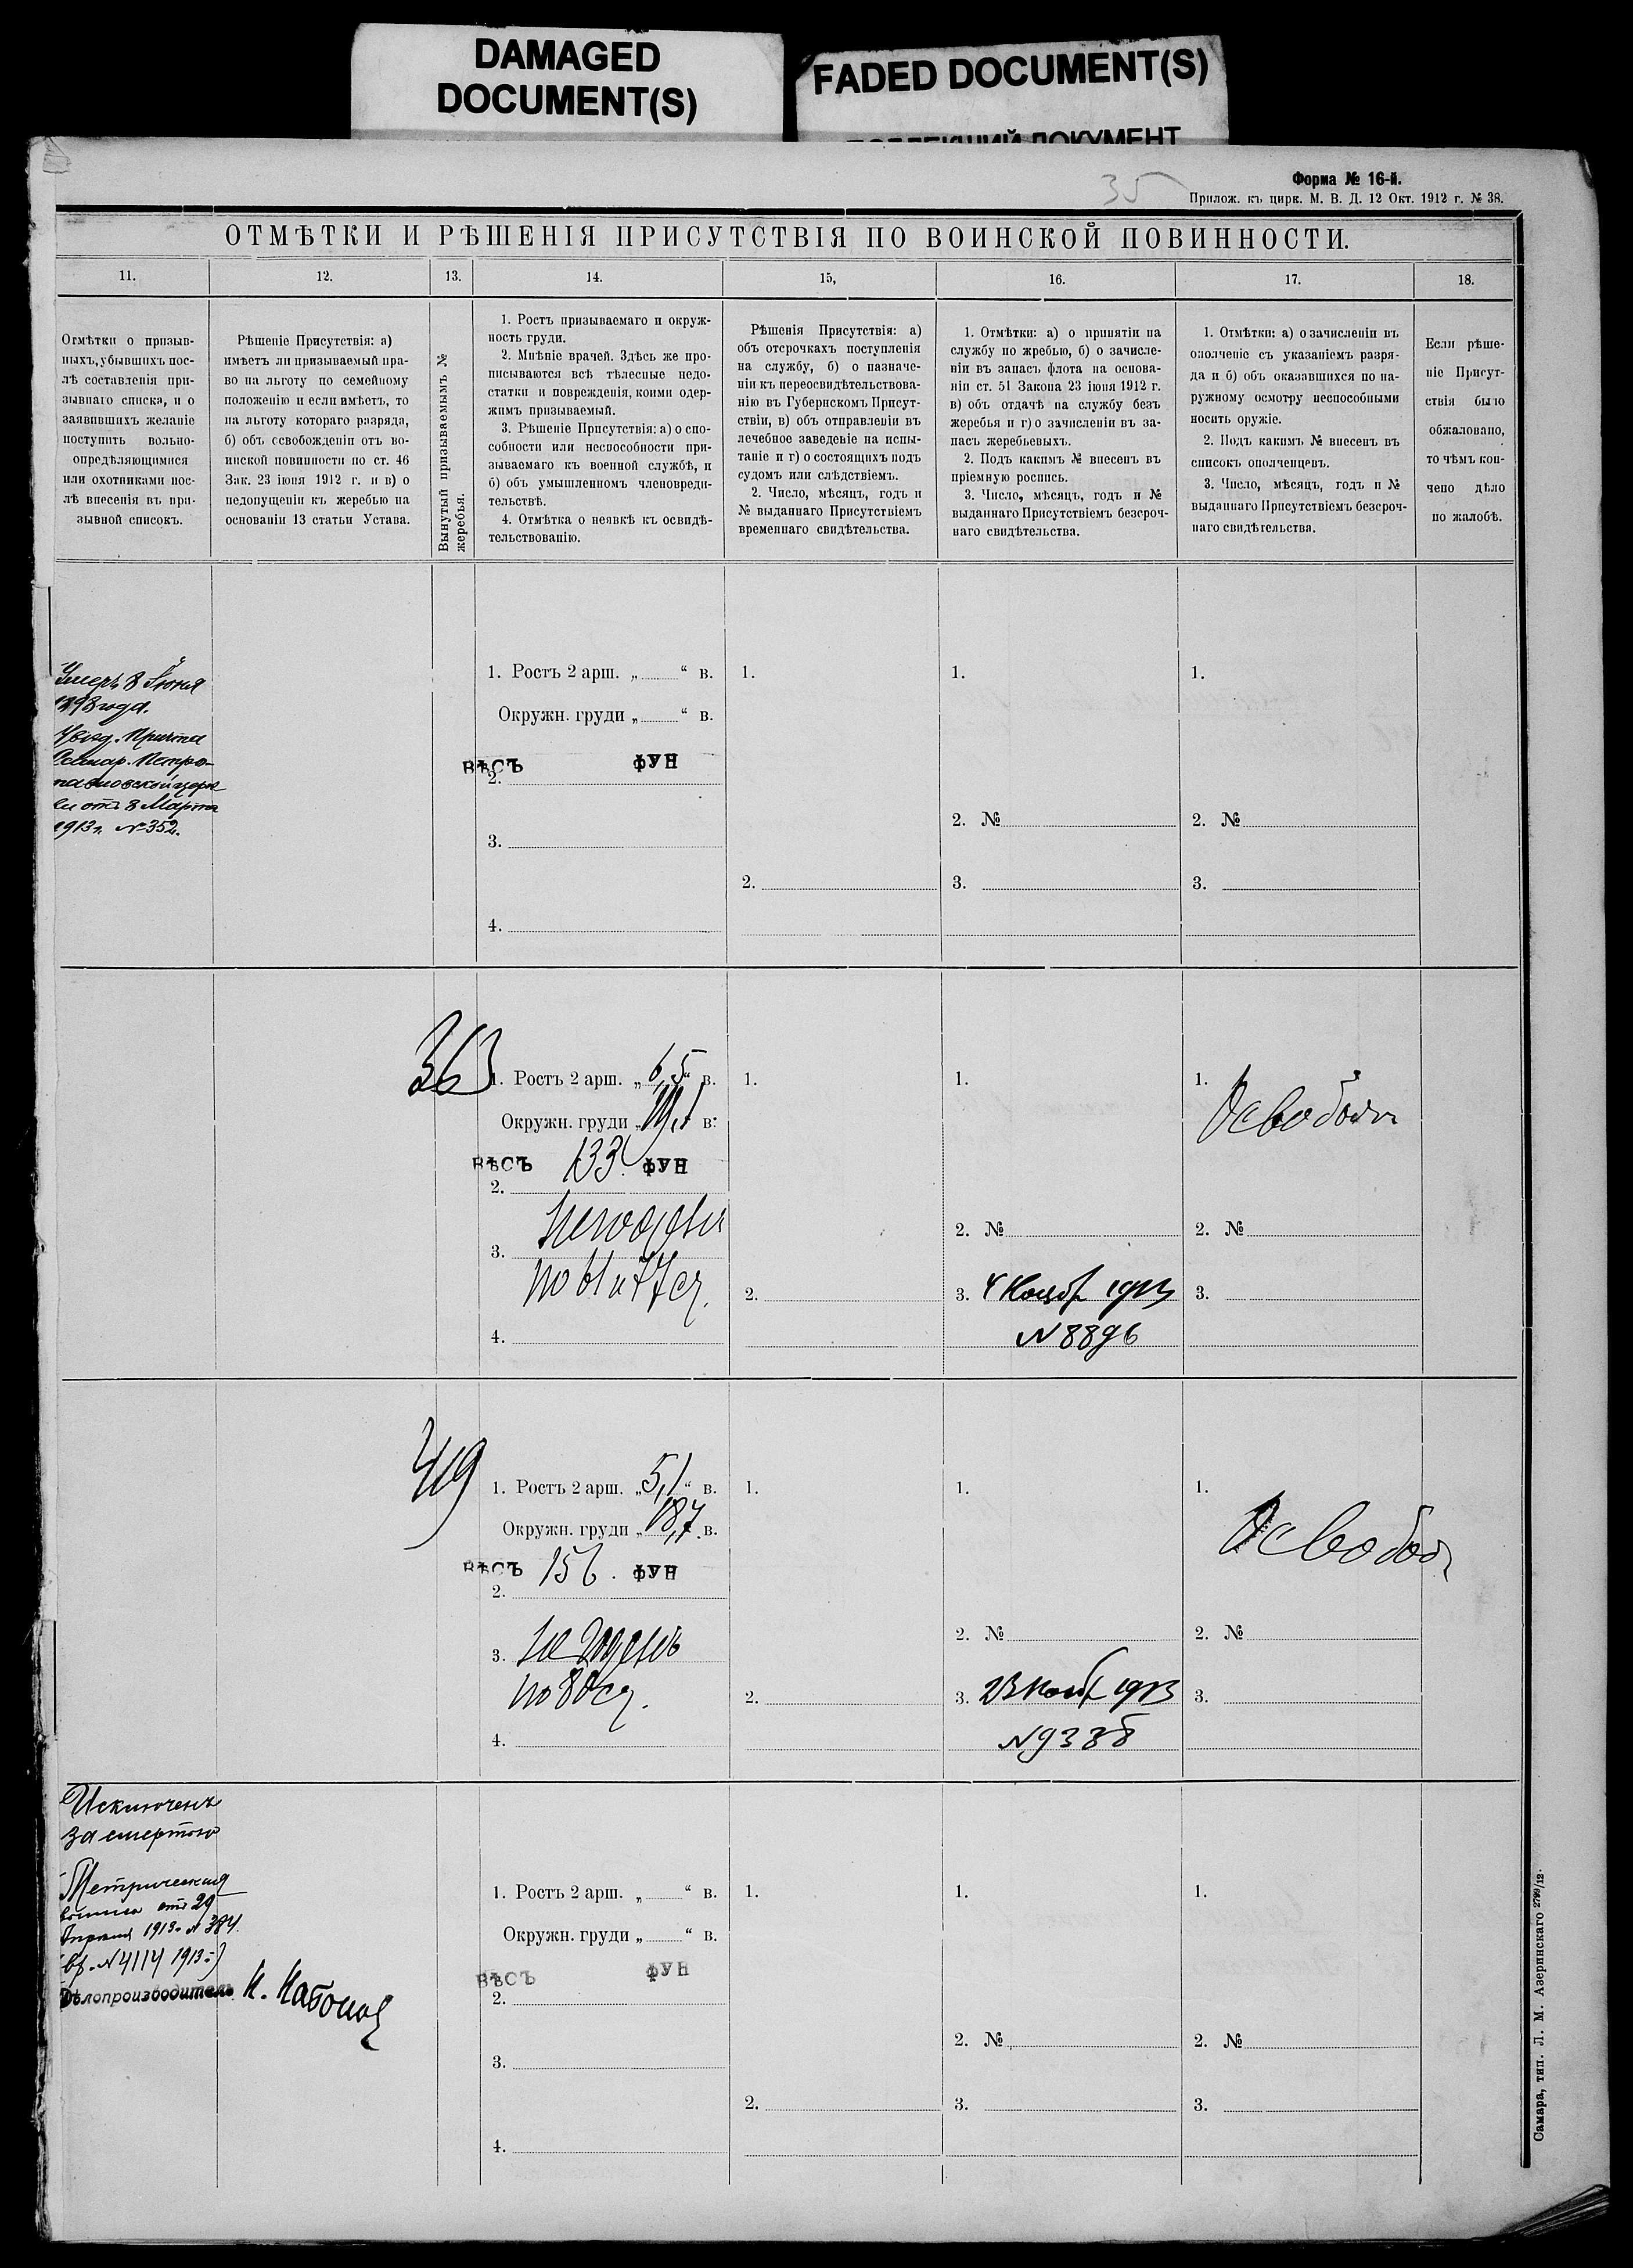 DAMAGED
DOCUMENT(S)
FADED DOCUMENT(S)
35
Форма № 16-й.
Прилож. къ цирк. М. В. Д. 12 Окт. 1912 г. № 38.
ОТМѢТКИ И РѢШЕНІЯ ПРИСУТСТВІЯ ПО ВОИНСКОЙ ПОВИННОСТИ.
11.
12.
13.
14.
15,
16.
17.
18.
Отмѣтки о призыв-
ныхъ, убывшихъ пос-
лѣ составленія при-
зывнаго списка, и о
заявившихъ желаніе
поступить вольно-
опредѣляющимися
или охотниками пос-
лѣ внесенія въ при-
зывной списокъ.
Рѣшеніе Присутствія: а)
имѣетъ ли призываемый пра-
во на льготу по семейному
положенію и если имѣетъ, то
на льготу котораго разряда,
б) объ освобожденіи отъ во-
инской повинности по ст. 46
Зак. 23 іюня 1912 г. и в) о
недопущеніи къ жеребью на
основаніи 13 статьи Устава.
Вынутый призываемымъ №
жеребья.
1. Ростъ призываемаго и окруж-
ность груди.
2. Мнѣніе врачей. Здѣсь же про-
писываются всѣ тѣлесные недо-
статки и поврежденія, коими одер-
жимъ призываемый.
3. Рѣшеніе Присутствія: а) о спо-
собности или неспособности при-
зываемаго къ военной службѣ, и
б) объ умышленномъ членовреди-
тельствѣ.
4. Отмѣтка о неявкѣ къ освидѣ-
тельствованію.
Рѣшенія Присутствія: а)
объ отсрочкахъ поступленія
на службу, б) о назначе-
ніи къ переосвидѣтельствова-
нію въ Губернскомъ Присут-
ствіи, в) объ отправленіи въ
лечебное заведеніе на испы-
таніе и г) о состоящихъ подъ
судомъ или слѣдствіемъ.
2. Число, мѣсяцъ, годъ и
№ выданнаго Присутствіемъ
временнаго свидѣтельства.
1. Отмѣтки: а) о принятіи на
службу по жребью, б) о зачисле-
ніи въ запасъ флота на основа-
ніи ст. 51 Закона 23 іюня 1912 г.
в) объ отдачѣ на службу безъ
жеребья и г) о зачисленіи въ за-
пасъ жеребьевыхъ.
2. Подъ какимъ № внесенъ въ
пріемную роспись.
3. Число, мѣсяцъ, годъ и №
выданнаго Присутствіемъ безсроч-
наго свидѣтельства.
1. Отмѣтки: а) о зачисленіи въ
ополченіе съ указаніемъ разря-
да и б) объ оказавшихся по на-
ружному осмотру неспособными
носить оружіе.
2. Подъ какимъ № внесенъ въ
списокъ ополченцевъ.
3. Число, мѣсяцъ, годъ и №
выданнаго Присутствіемъ безсроч-
наго свидѣтельства.
Если рѣше-
ніе Присут-
ствія было
обжаловано,
то чѣмъ кон-
чено дѣло
по жалобѣ.
Умеръ 8 Іюня
1893 года.
Увѣд. Причта
Самар. Петро-
павловской церк
ви отъ 8 Марта
1913 г. № 352.
1. Ростъ 2 арш. „ “ в.
Окружн. груди „ “ в.
ВѢСЪ ФУН
2.
3.
4.
1.
2.
1.
2. №
3.
1.
2. №
3.
363
1. Ростъ 2 арш. „6,5“ в.
Окружн. груди „19,1 в.
ВѢСЪ 133 ФУН
2.
Негоденъ
3.
по 61 и 77 ст.
4.
1.
2.
1.
2. №
3. 4 Ноябр 1913
N 8896
1.
Освобожд
2. №
3.
419
1. Ростъ 2 арш. „5,1“ в.
Окружн. груди „18,7 в.
ВѢСЪ 156 ФУН
2.
3. Не годенъ
по 80 ст.
4.
1.
2.
1.
2. №
3. 23 Нояб 1913
N 9338
1.
Освобод
2. №
3.
Исключенъ
за смертью
Метрическая
выпись отъ 29
Апрѣля 1913 г. № 384.
(вх. N 4114 1913 г.)
Дѣлопроизводитель
1. Ростъ 2 арш. „ “ в.
Окружн. груди „ “ в.
ВѢСЪ ФУН
2.
3.
4.
1.
2.
1.
2. №
3.
1.
2. №
3.
Самара, тип. Л. М. Азеринскаго 2799/12.